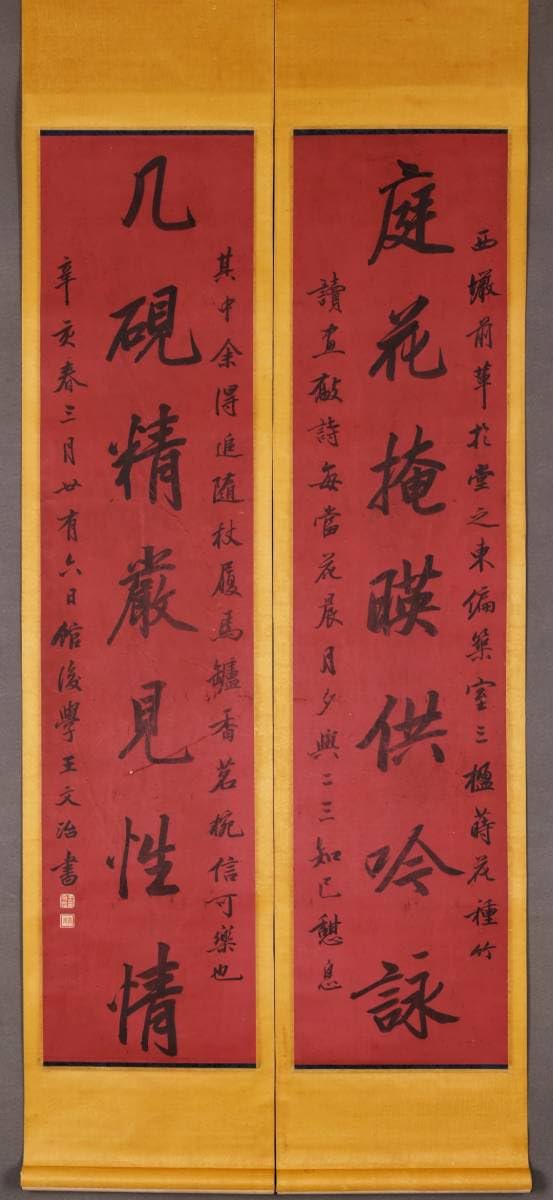 西墩前軰於堂之東偏築室三楹蒔花種竹
庭花掩暎供吟詠
讀画敲詩每當花晨月夕與二三知己憩息
其中余得追隨杖履焉鑪香茗椀信可樂也
几硯精嚴見性情
辛亥春三月廿有六日館後學王文治書